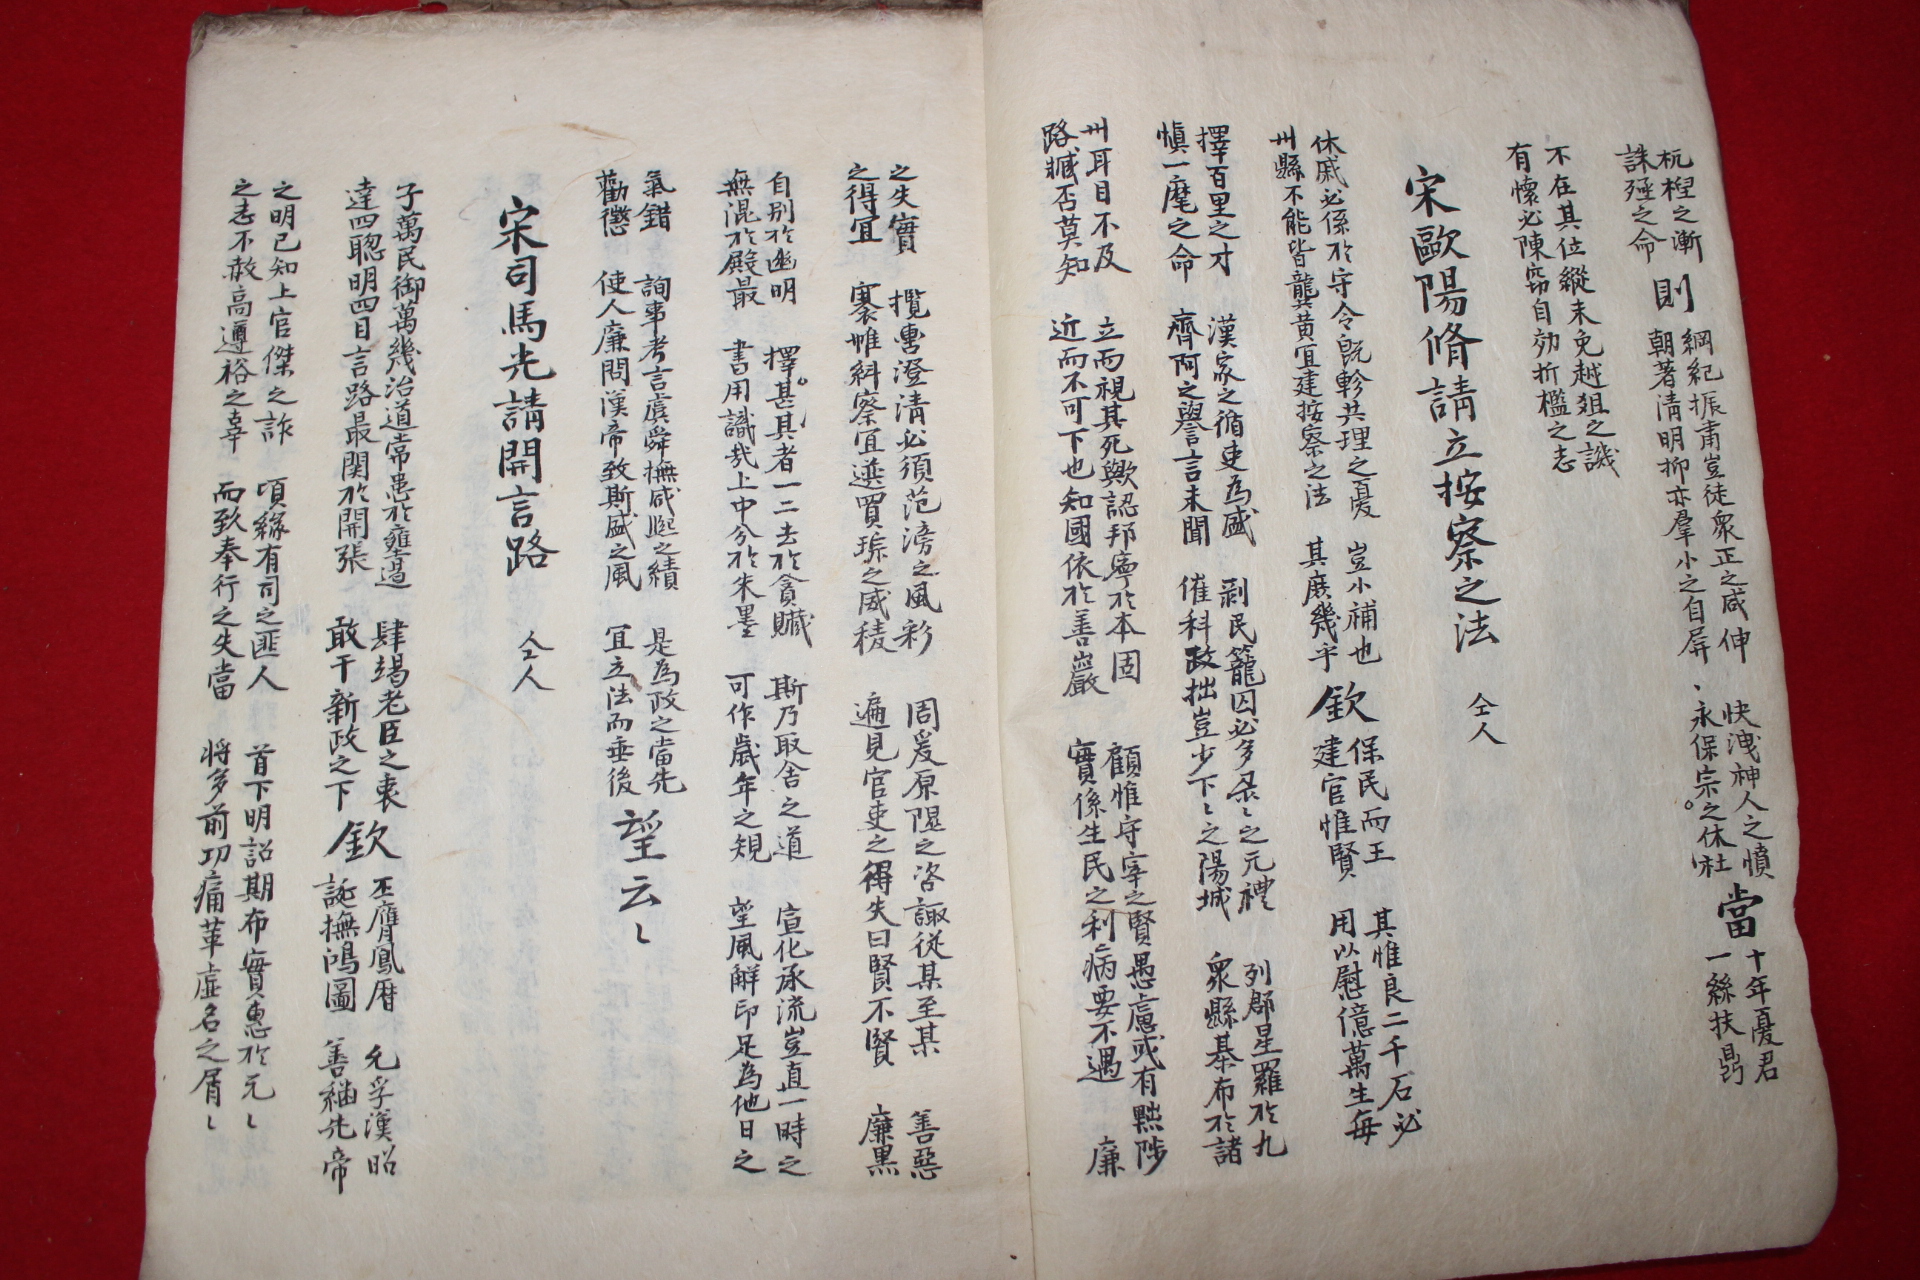 杌棿之漸 綱紀振肅豈徒衆正之咸伸 快洩神人之憤 十年憂君
誅殛之命 則 朝著清明抑亦羣小之自屏 永保宗社之休 當 一絲扶鼎
不在其位縱未免越俎之譏
有懷必陳窃自効折檻之志
宋歐陽脩請立按察之法 仝人
休戚必係於守令旣軫共理之憂 豈小補也 保民而王 其惟良二千石必
州縣不能皆龔黃宜建按察之法 其庶幾乎 欽 建官惟賢 用以慰億萬生每
擇百里之才 漢家之循吏為盛 剥民籠囚必多 之元禮 列郡星羅於九
愼一麾之命 齊阿之譽言未聞 催科政拙豈少下〻之陽城 衆縣棊布於諸
州耳目不及 立而視其死歟認邦寧於本固 顧惟守宰之賢愚慮或有黜陟
路臧否莫知 近而不可下也知國依於善巖 實係生民之利病要不遇 廉
之失實 攬轡澄清必須范滂之風彩 周爰原隰之咨諏從某至某 善惡
之得宜 褰帷糾察宜選賈琮之威稜 遍見官吏之得失曰賢不賢 廉黑
自别於幽明 擇甚其者一二去於貪贓 斯乃取舍之道 宣化承流豈直一時之
無混於殿最 書用識哉上中分於朱墨 可作歲年之規 望風解印足為他日之
氣錯 詢事考言虞舜撫咸熙之績 是為政之當先
勸懲 使人廉問漢帝致斯盛之風 宜立法而垂後 望云〻
宋司馬光請開言路 仝人
子萬民御萬幾治道常患於壅遏 肆竭老臣之衷 丕膺鳳曆 允孚漢昭
達四聡明四目言路最関於開張 敢干新政之下 欽 誕撫鴻圖 善紬先帝
之明已知上官傑之詐 頃緣有司之匪人 首下明詔期布實惠於元〻
之志不赦高遵裕之辜 而致奉行之失當 将多前功痛革虛名之屑〻